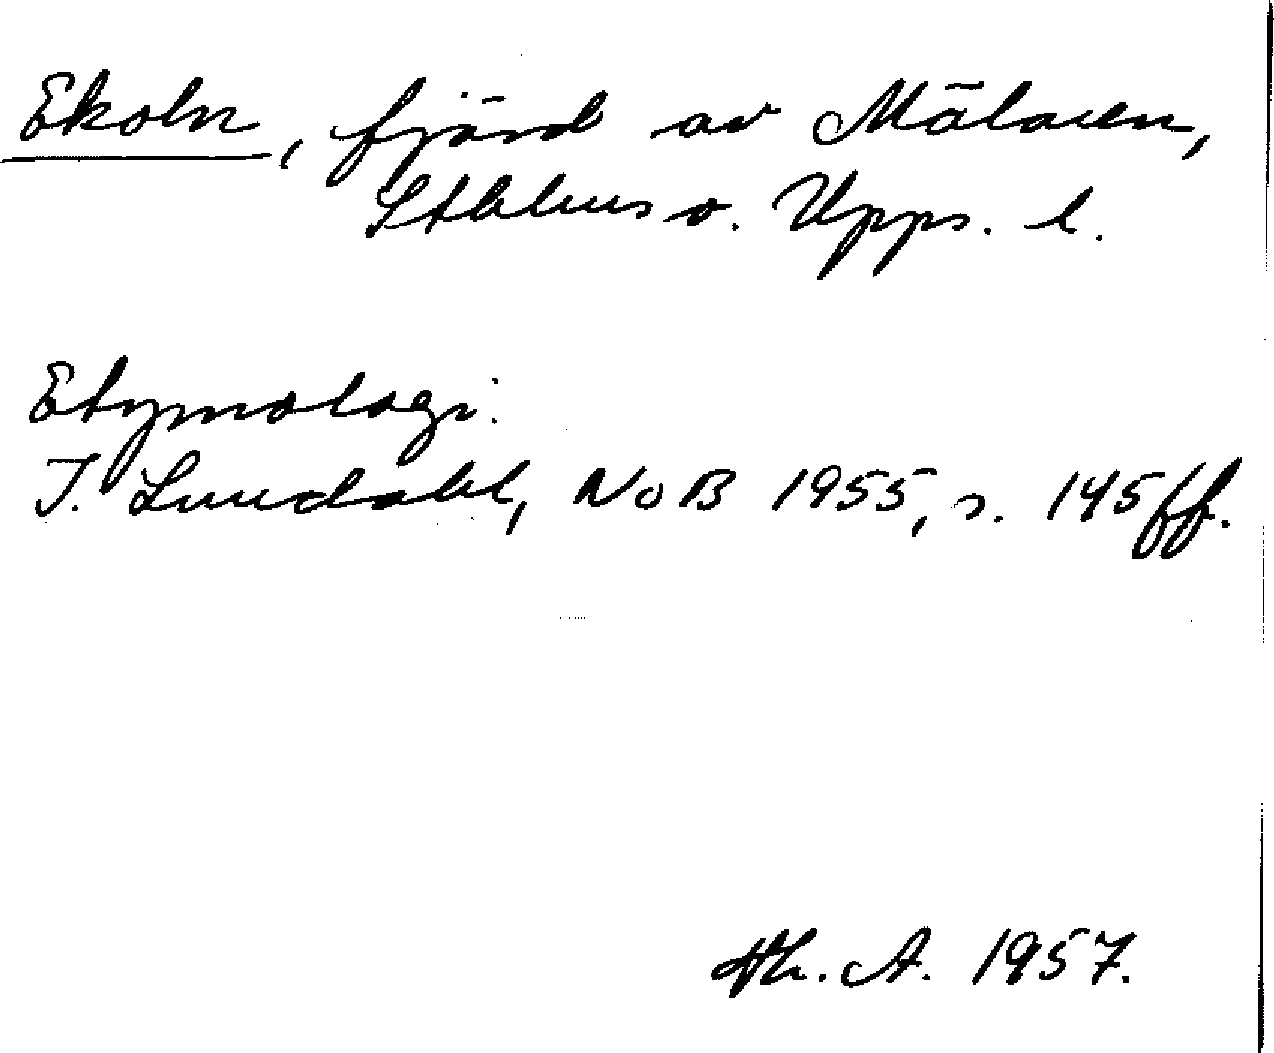 Ekoln, fjärd av Mälaren,
Sthlms o. Upps. l.
Etymologi:
I. Lundahl, NoB 1955, s. 145 ff.
Th. A. 1957.